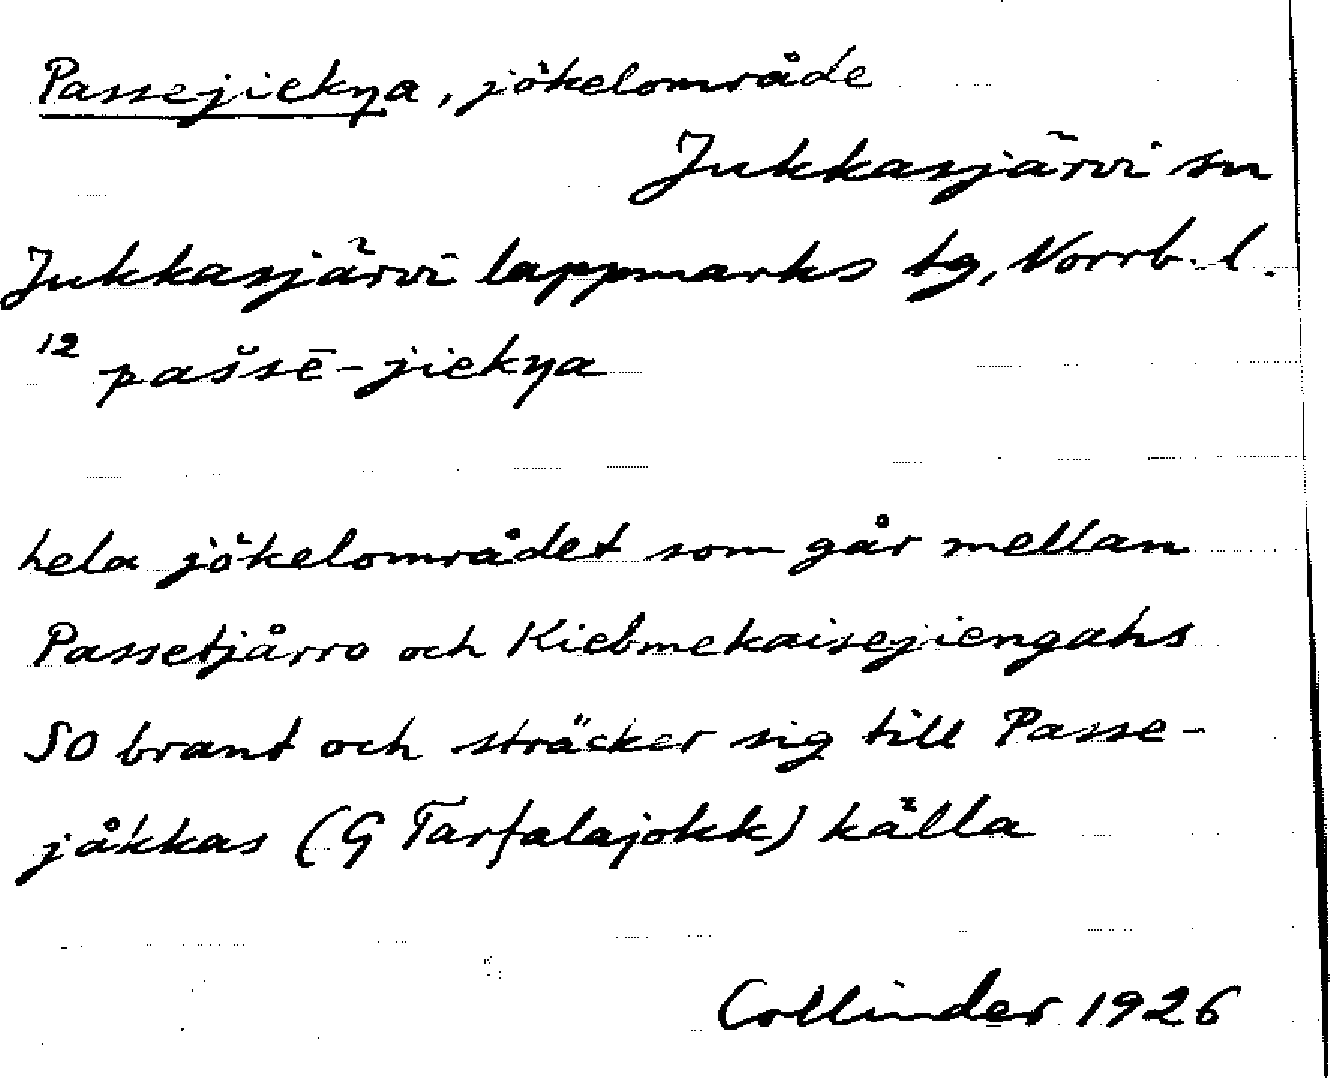 Passejiekŋa, jökelområde
Jukkasjärvi sn
Jukkasjärvi lappmarks tg, Norrb. l.
12 pašsē-jiekŋa
hela jökelområdet som går mellan
Passetjårro och Kiebmekaisejiengahs
SO brant och sträcker sig till Passe-
jåkkas (G Tarfalajokk) källa
Collinder 1926